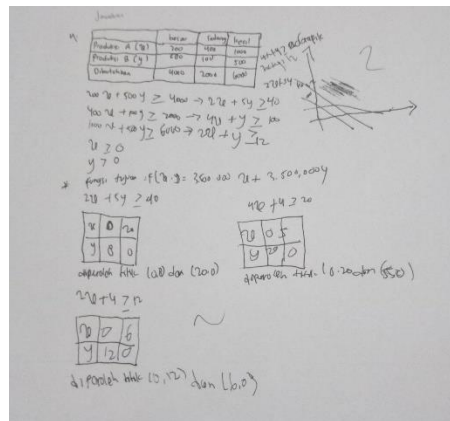 Jawaban
besar sedang kecil
Produksi A (x) 200 400 1000
Produksi B (y) 500 100 500
Dibutuhkan 4000 2000 6000
2
200 x + 500 y ≥ 4000 → 2x + 5y ≥ 40
400 x + 100 y ≥ 2000 → 4x + y ≥
1000 x + 500 y ≥ 6000 → 2x + y ≥ 12
x ≥ 0
y ≥ 0
* fungsi tujuan : f(x,y) = 3.500.000 x + 3.500.000 y
2x + 5y ≥ 40
4x + y ≥ 20
x 0 20
y 8 0
x 0 5
y 20 0
diperoleh titik (0,8) dan (20,0)
diperoleh titik (0,20) dan (5,0)
2x + y ≥ 12
x 0 6
y 12 0
diperoleh titik (0,12) dan (6,0)